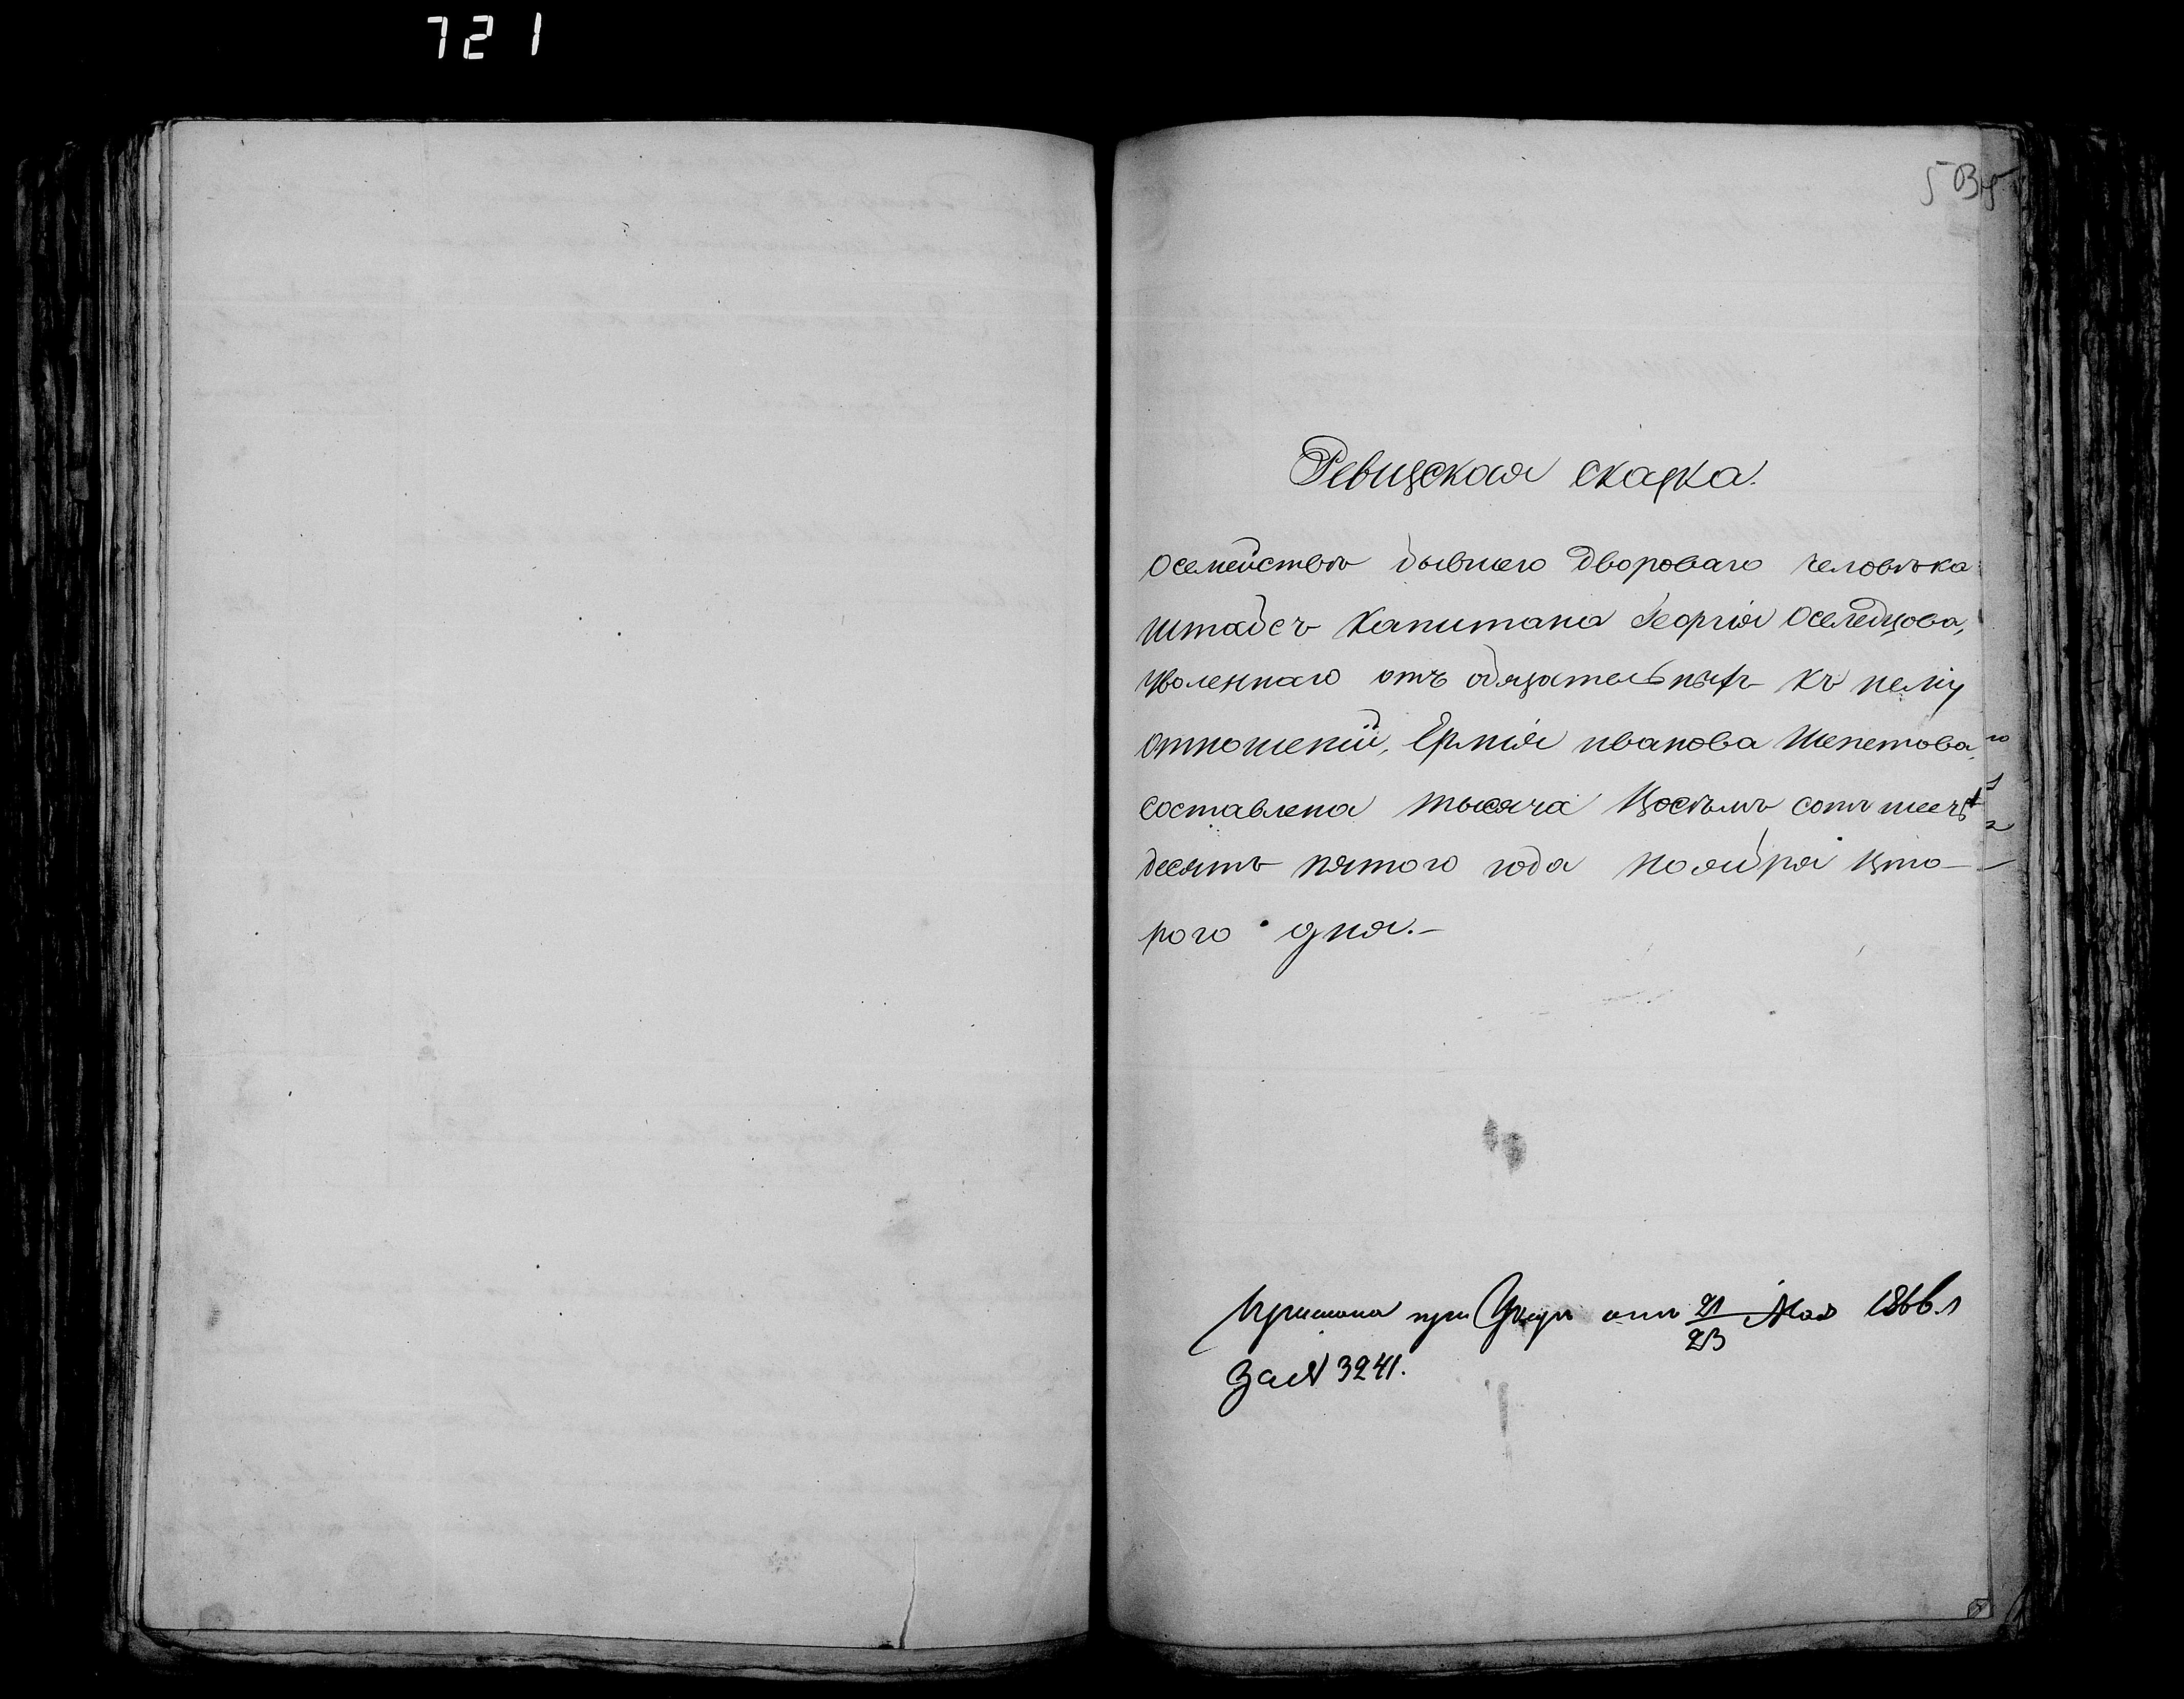 721
503
Ревизская сказка.
О семействѣ бывшего дворового человѣка
штабсъ капитана Георгія Оселедцова,
уволеннаго отъ обязательныхъ къ нему
отношеній, Ермія Иванова Шепетова,
составлена тысяча восемь сотъ шесть
десять пятого года ноября вто-
рого дня.-
Прислана при Указѣ отъ 21/23 Мая 1866.
за № 3241.